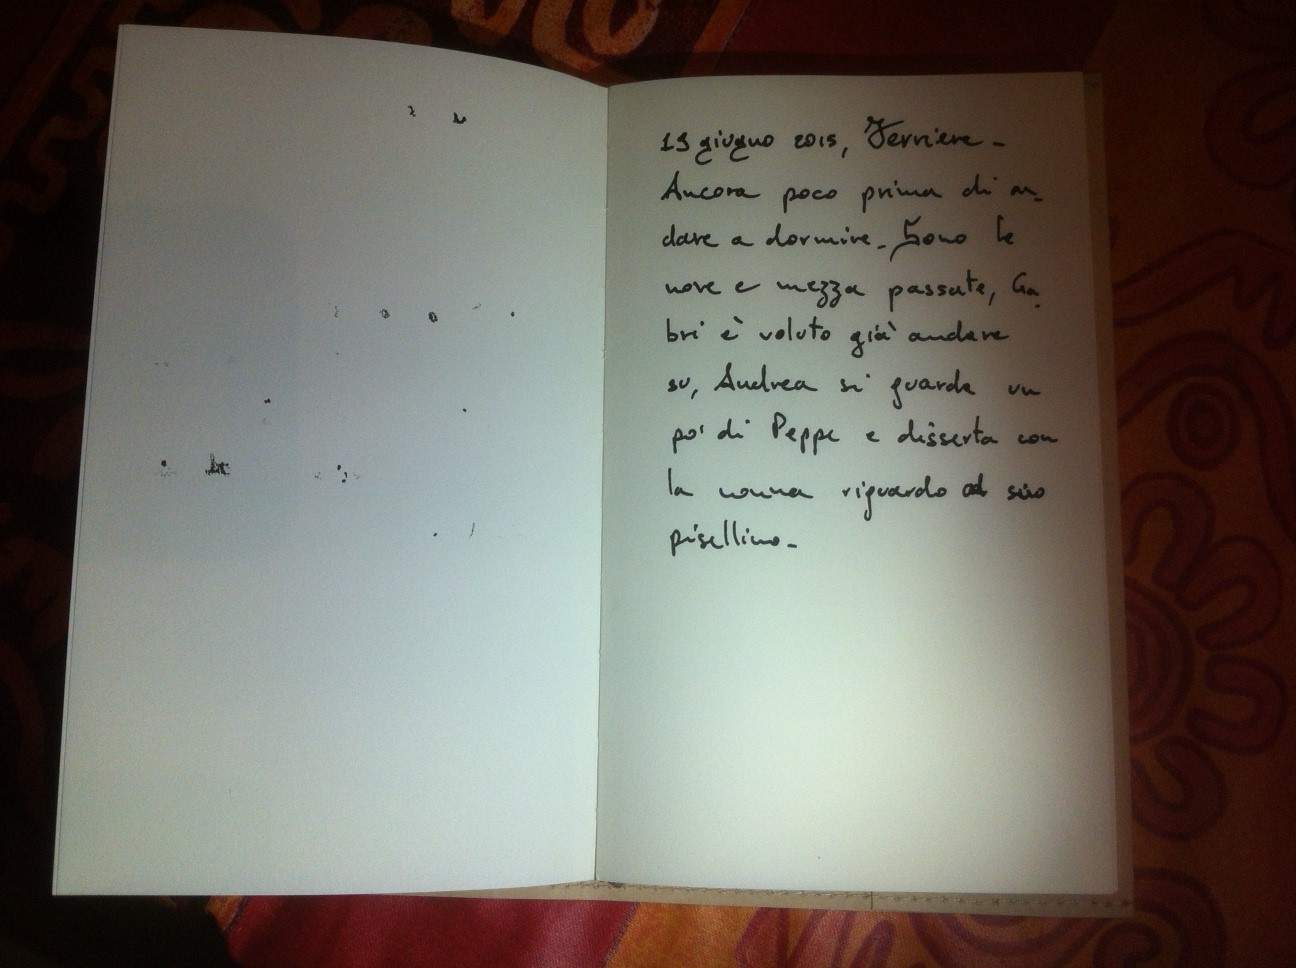 19 giugno 2015, Ferriere -
Ancora poco prima di an-
dare a dormire. Sono le
nove e mezza passate, Ga-
bri è voluto già andare
su, Andrea si guarda un
po' di Peppe e disserta con
la nonna riguardo al suo
pisellino -